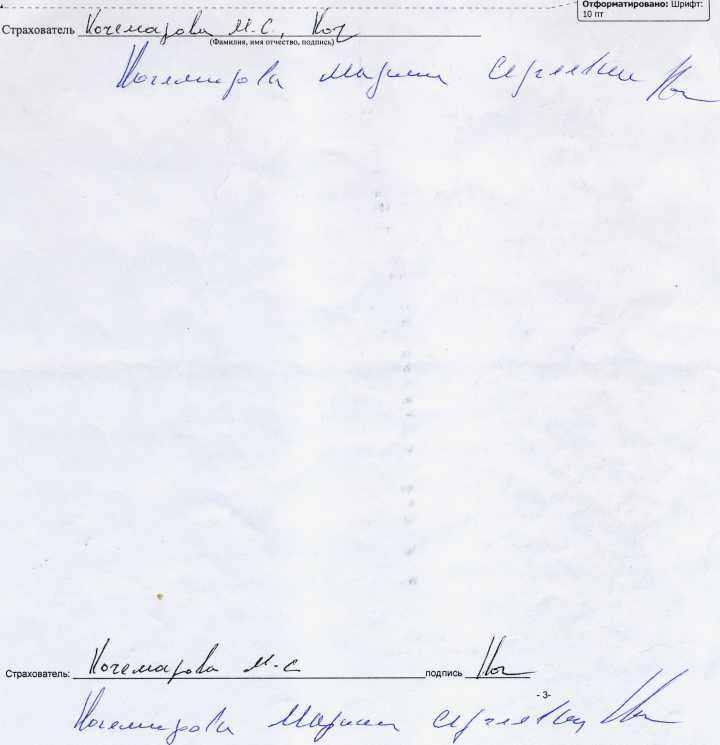 Отформатировано: Шрифт:
10 пт
Страхователь Кочемарова М.С., Коч
(Фамилия, имя отчество, подпись)
Кочемирова Марина Сергеевна Коч
Страхователь: Кочемарова М.С подпись Коч
- 3-
Кочемирова Марина Сергеевна Коч